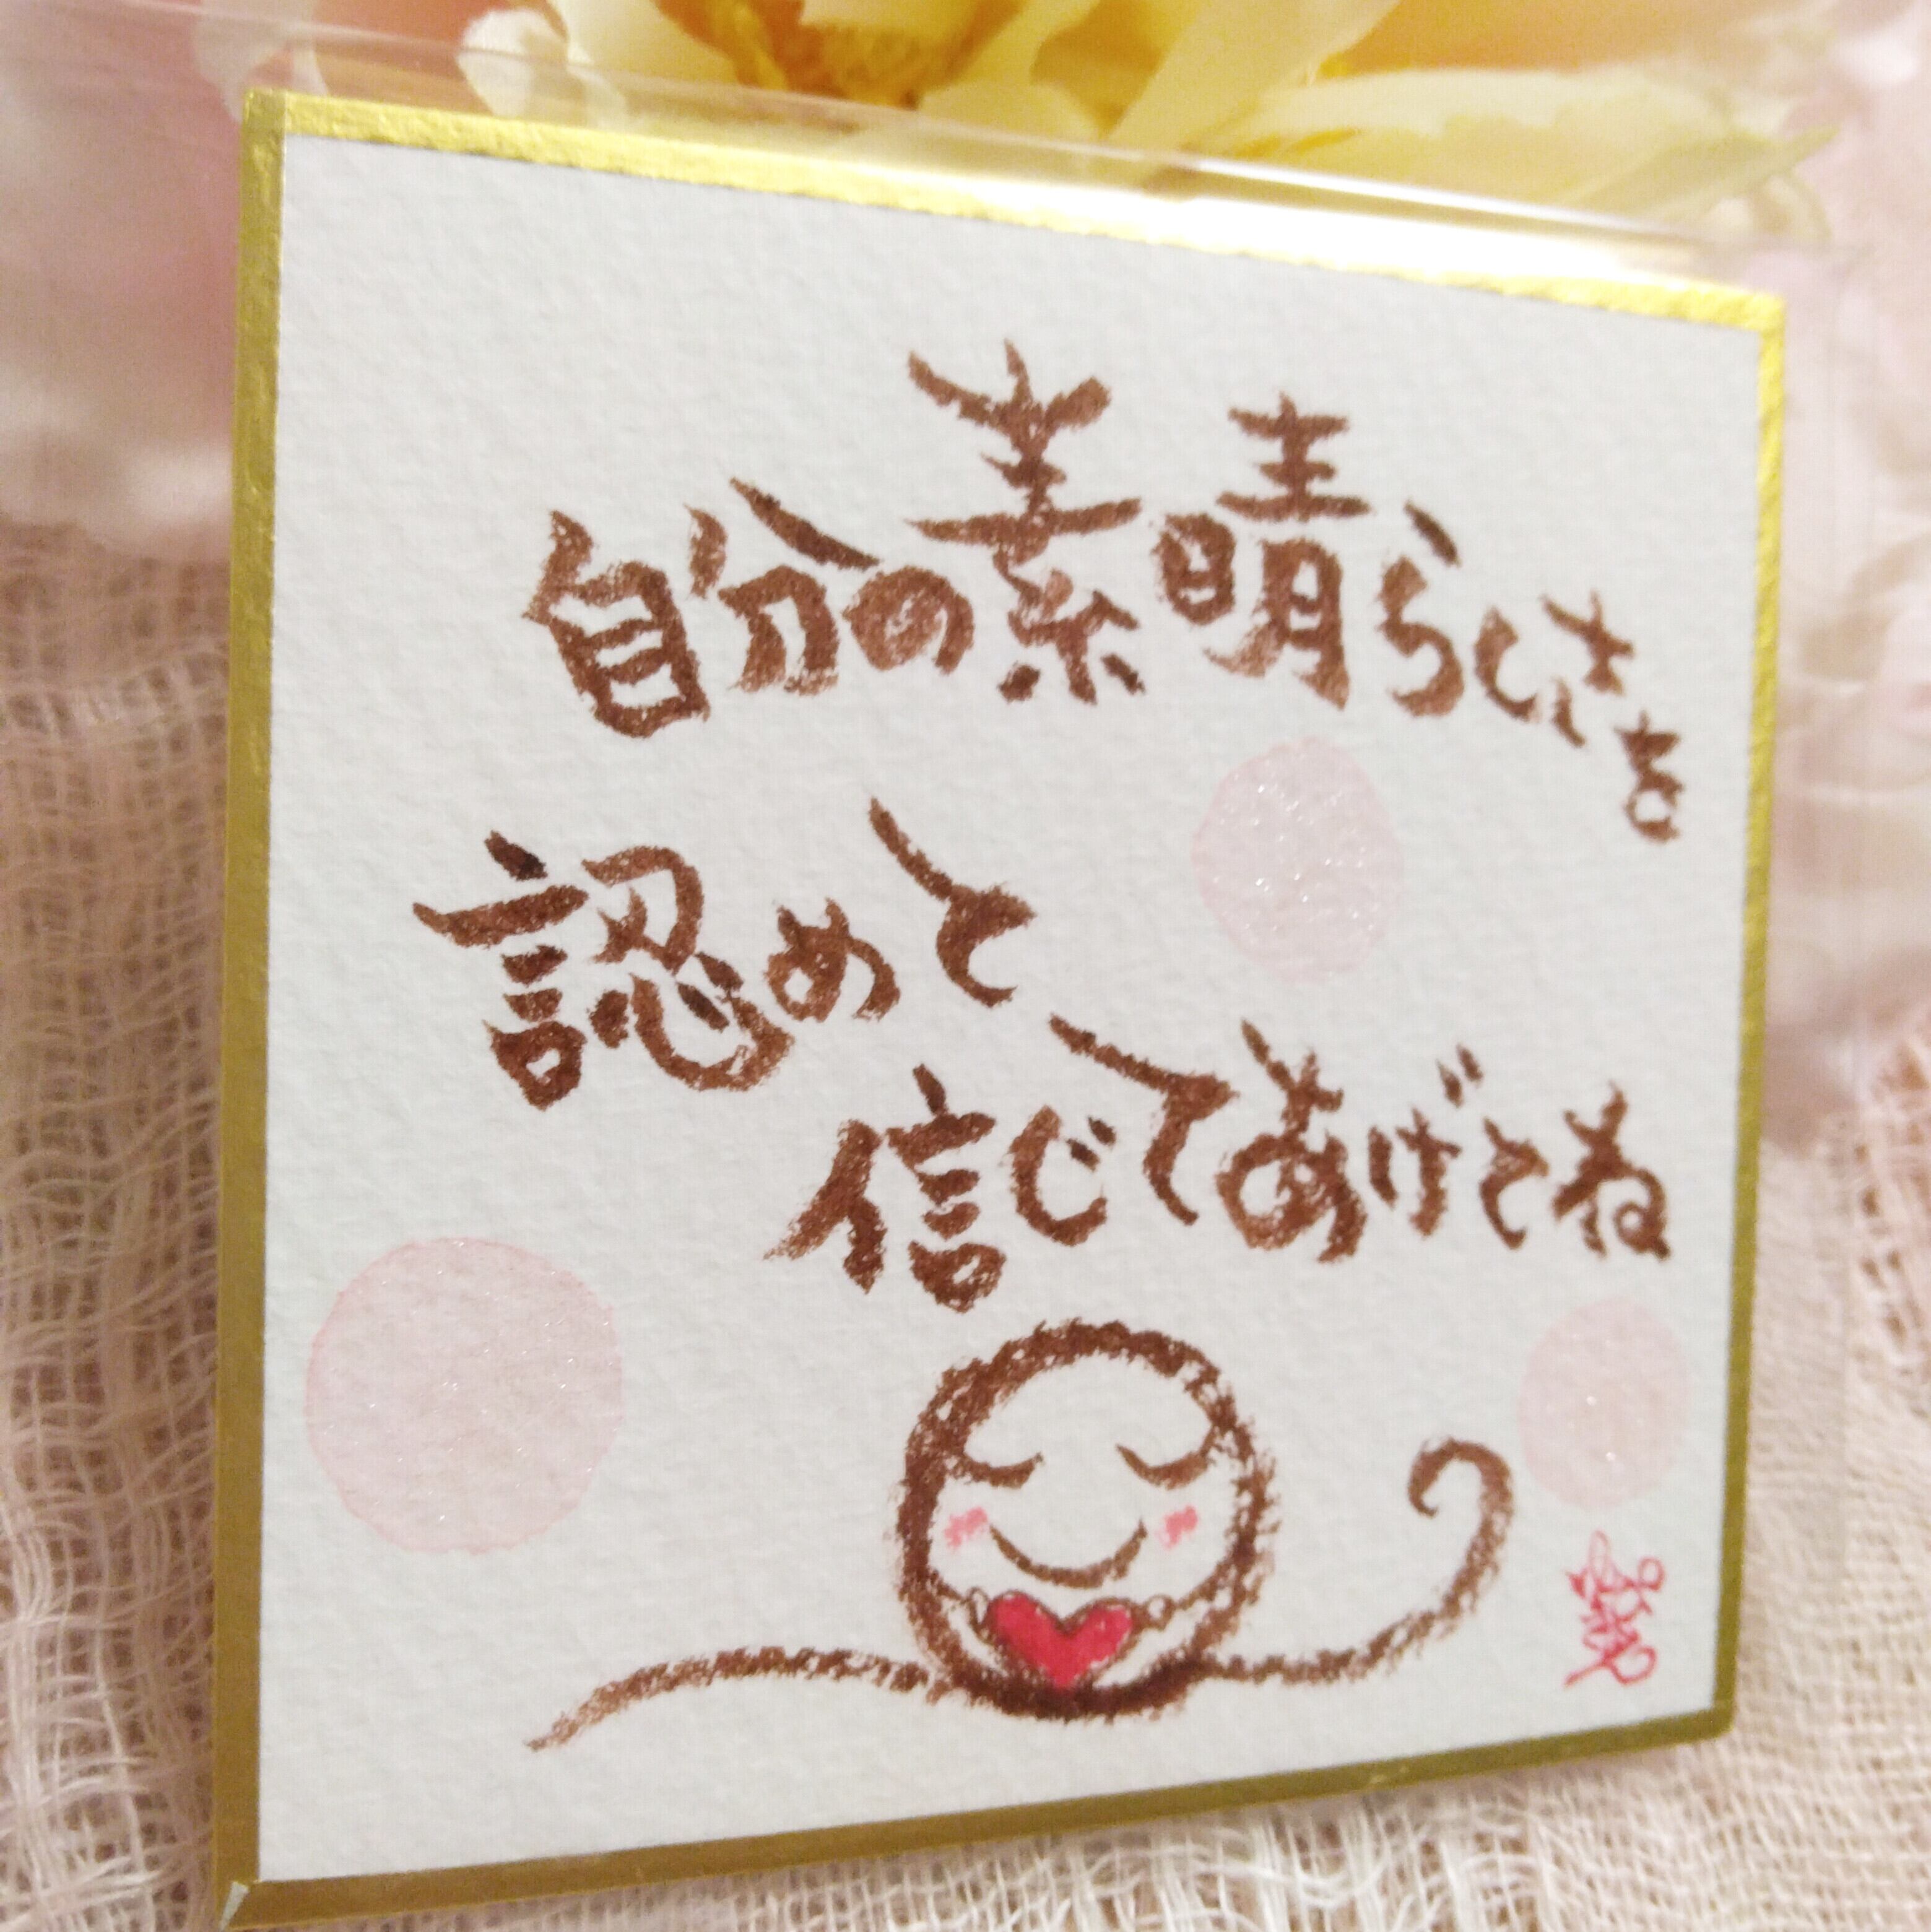 自分の素晴らしさを
認めて
信じてあげてね